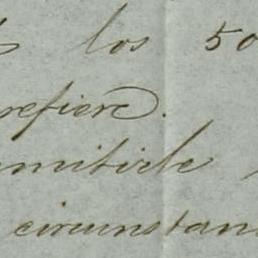 los 50
refiere.
mitirle
circunstan